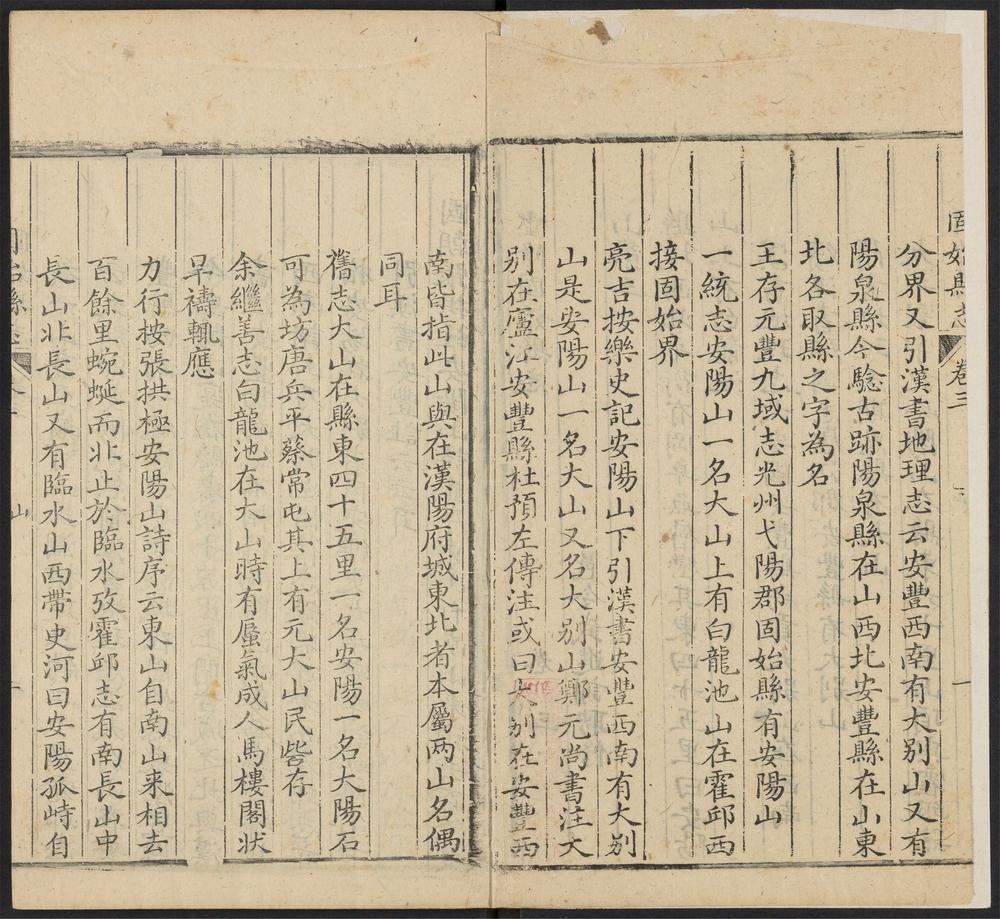 固始縣志 卷三 一
分界又引漢書地理志云安豐西南有大别山又有
陽泉縣今驗古跡陽泉縣在山西北安豐縣在山東
北各取縣之字為名
王存元豐九域志光州弋陽郡固始縣有安陽山
一統志安陽山一名大山上有白龍池山在霍邱西
接固始界
亮吉按樂史記安陽山下引漢書安豐西南有大别
山是安陽山一名大山又名大别山鄭元尚書注大
别在廬江安豐縣杜預左傳注或曰大别在安豐西
南皆指此山與在漢陽府城東北者本屬两山名偶
同耳
舊志大山在縣東四十五里一名安陽一名大陽石
可為坊唐兵平蔡常屯其上有元大山民砦存
余繼善志白龍池在大山時有蜃氣成人馬樓閣状
旱禱輒應
力行按張拱極安陽山詩序云東山自南山来相去
百餘里蜿蜒而北止於臨水攷霍邱志有南長山中
長山北長山又有臨水山西帶史河曰安陽孤峙自